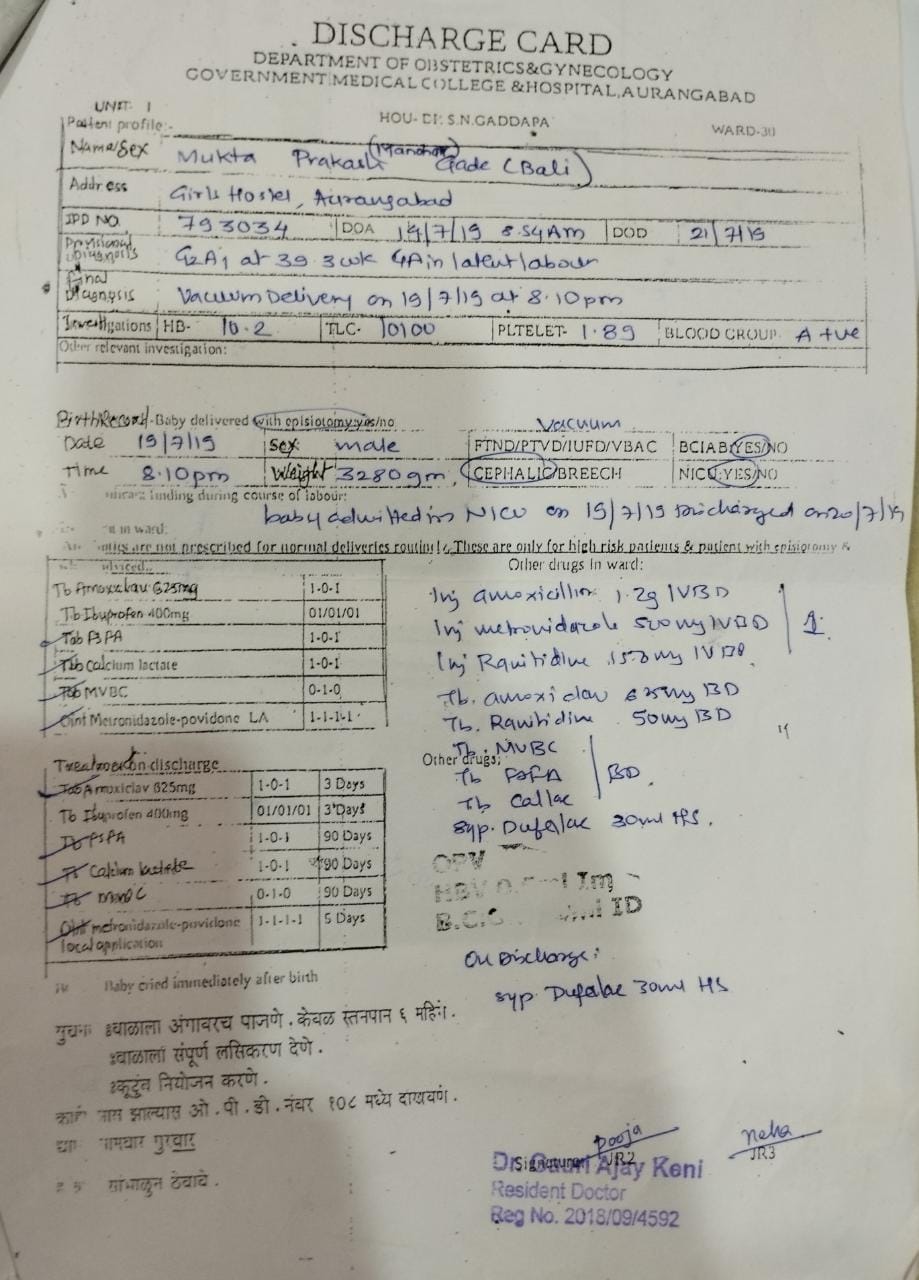 DISCHARGE CARD
DEPARTMENT OF OBSTETRICS&GYNECOLOGY
GOVERNMENT MEDICAL COLLEGE &HOSPITAL,AURANGABAD
UNIT: 1
HOU- Dr. S.N.GADDAPA
WARD-30
Patient profile:-
Name/Sex Mukta Prakash (Manohar) Gade (Bali)
Address Girls Hostel, Aurangabad
IPD NO. 793034 DOA 19/7/19 8.54Am DOD 21/7/19
Provisional Diagnosis G2A1 at 39.3wk GA in latent labour
Final Diagnosis Vacuum Delivery on 19/7/19 at 8.10pm
Investigations HB- 10.2 TLC- 10100 PLTELET- 1.89 BLOOD GROUP A +ve
Other relevant investigation:
Birth Record-Baby delivered with episiotomy:yes/no
Vacuum
Date 19/7/19 Sex male FTND/PTVD/IUFD/VBAC BCIAB:YES/NO
Time 8.10pm Weight 3280gm CEPHALIC/BREECH NICU:YES/NO
finding during course of labour:
baby admitted in NICU on 19/7/19 Discharged on 20/7/19
in ward:
are not prescribed for normal deliveries These are only for high risk patients & patient with episiotomy &
Other drugs in ward:
Tb Amoxyclav 625mg 1-0-1
Tb Ibuprofen 400mg 01/01/01
Tab FSFA 1-0-1
Tab Calcium lactate 1-0-1
Tab MVBC 0-1-0
Oint Metronidazole-povidone LA 1-1-1-1
Inj amoxicillin 1.2g IV BD
Inj metronidazole 500mg IV BD
Inj Ranitidine 150mg IV BD
1
Tb. amoxiclav 625mg BD
Tb. Ranitidine 50mg BD
Tb. MVBC
Other drugs:
Tb FSFA BD
Tb Callac
Syp. Dufalac 30ml HS.
Treatment on discharge
Tab Amoxiclav 625mg 1-0-1 3 Days
Tb Ibuprofen 400mg 01/01/01 3 Days
Tb FSFA 1-0-1 90 Days
Tb Calcium lactate 1-0-1 90 Days
Tb MVBC 0-1-0 90 Days
Oint metronidazole-povidone local application 1-1-1-1 5 Days
OPV
HBV Im
B.C.G ID
On Discharge:
Syp. Dufalac 30ml HS
Baby cried immediately after birth
बाळाला अंगावरच पाजणे. केवळ स्तनपान ६ महिने.
बाळाला संपूर्ण लसिकरण देणे.
कूटुंब नियोजन करणे.
झाल्यास ओ.पी.डी.नंबर १०८ मध्ये दाखवणे.
गुरुवार
सांभाळुन ठेवावे.
Pooja
JR2
Neha
JR3
Signature
Dr. Gauri Ajay Keni
Resident Doctor
Reg No. 2018/09/4592